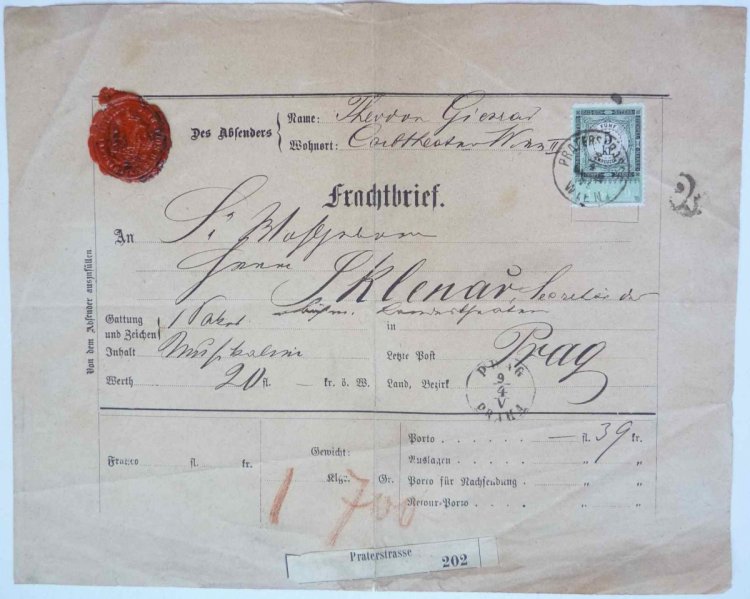 Des Absenders
Name: Theodor
Wohnort: Carltheater Wien II
Frachtbrief.
An
Herrn
Sklenař, Secretär der
böhm. Landestheater
Von dem Absender auszufüllen
Gattung und Zeichen 1 Paket
in Prag
Inhalt Musikalien
Letzte Post
Werth 20 fl. — kr. ö. W.
Land, Bezirk
PRATERSTRASSE
WIEN
2
PRAG
9/4
V
PRAHA
Franco fl. kr.
Gewicht:
Klgr. Gr.
1 700
Porto — fl. 39 kr.
Auslagen " "
Porto für Nachsendung " "
Retour-Porto " "
Praterstrasse
202